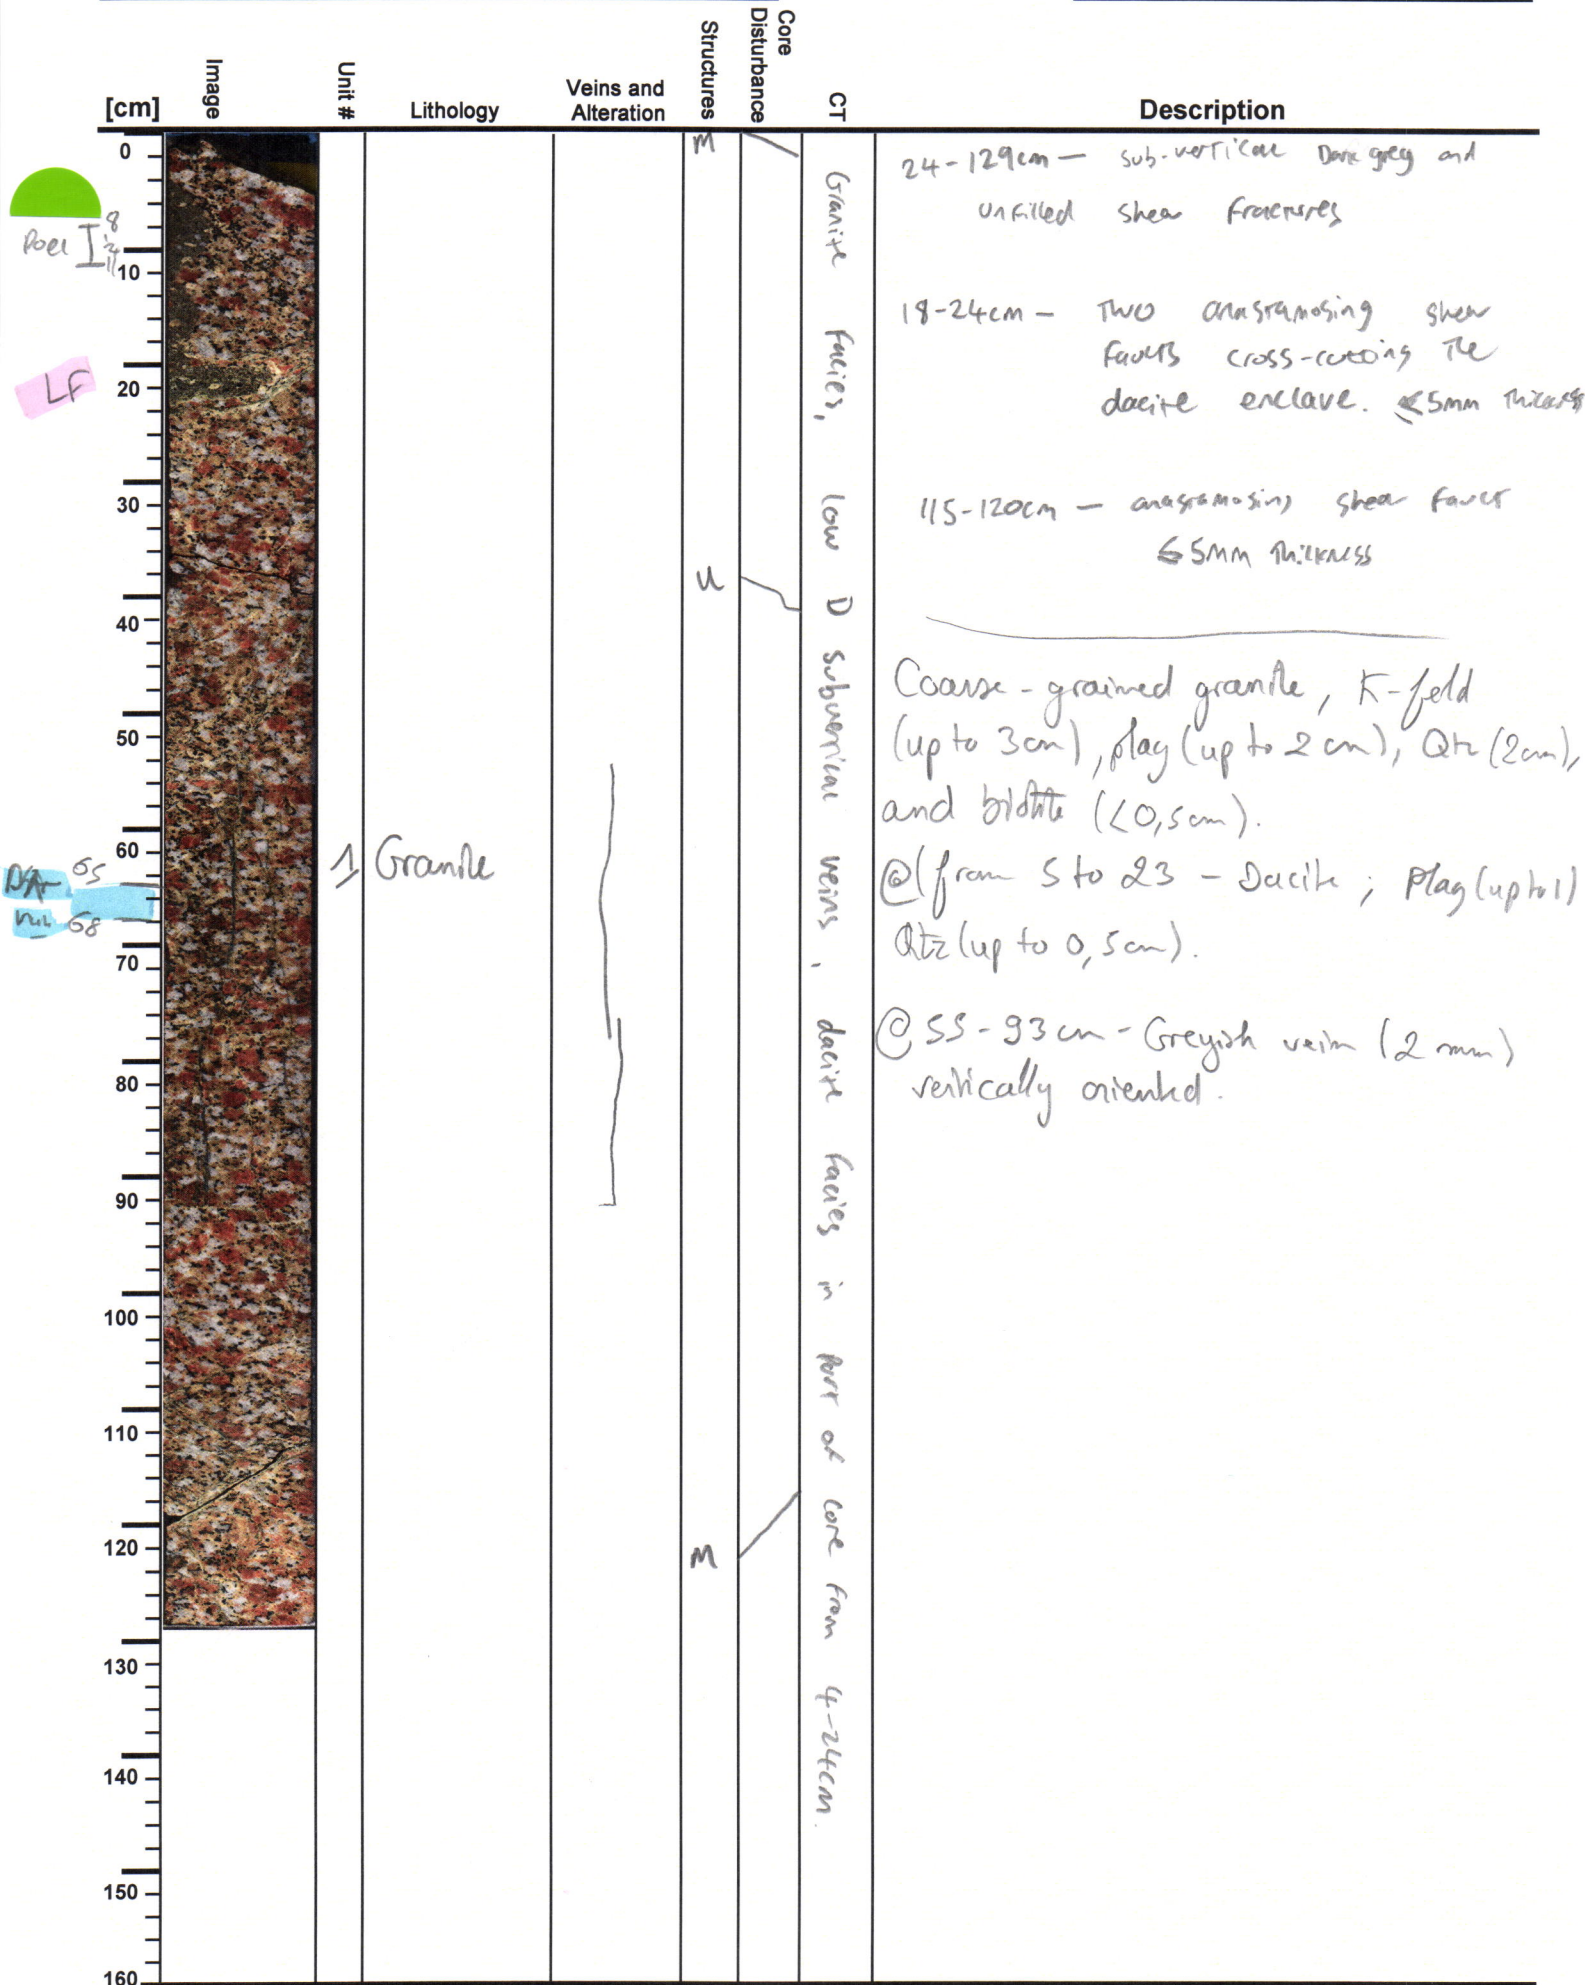 [cm]
Image
Unit #
Lithology
Veins and
Alteration
Structures
Core
Disturbance
CT
Description
0
10
20
30
40
50
60
70
80
90
100
110
120
130
140
150
160
8
11
LF
65
68
1 Granite
M
U
M
Granite facies, low D subvertical veins, dacite facies in part of core from 4-24cm.
24-129cm — sub-vertical Dark grey and
unfilled shear fractures
18-24cm - Two anastamosing shear
faults cross-cutting the
dacite enclave. ≤5mm thickness
115-120cm - anastamosing shear fault
≤5mm thickness
Coarse-grained granite, K-feld
(up to 3cm), plag (up to 2 cm), Qtz (2cm),
and biotite (<0,5cm).
@(from 5 to 23 - Dacite; Plag (up to 1)
Qtz (up to 0,5cm).
@ 55-93 cm - Greyish vein (2 mm)
vertically oriented.